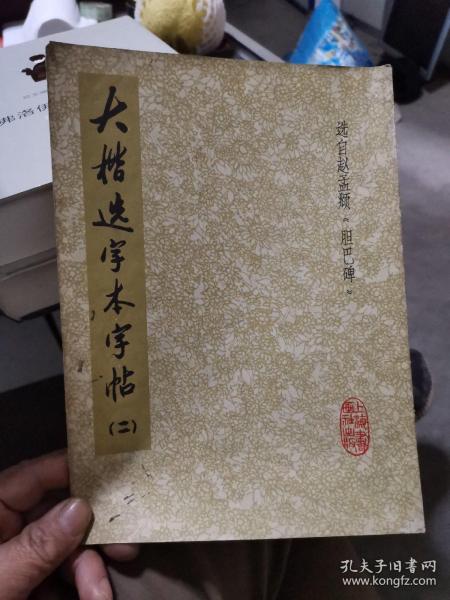 大楷选字本字帖
(二)
选自赵孟頫《胆巴碑》
上海书
画社出版
弗洛伊
孔夫子旧书网
www.kongfz.com